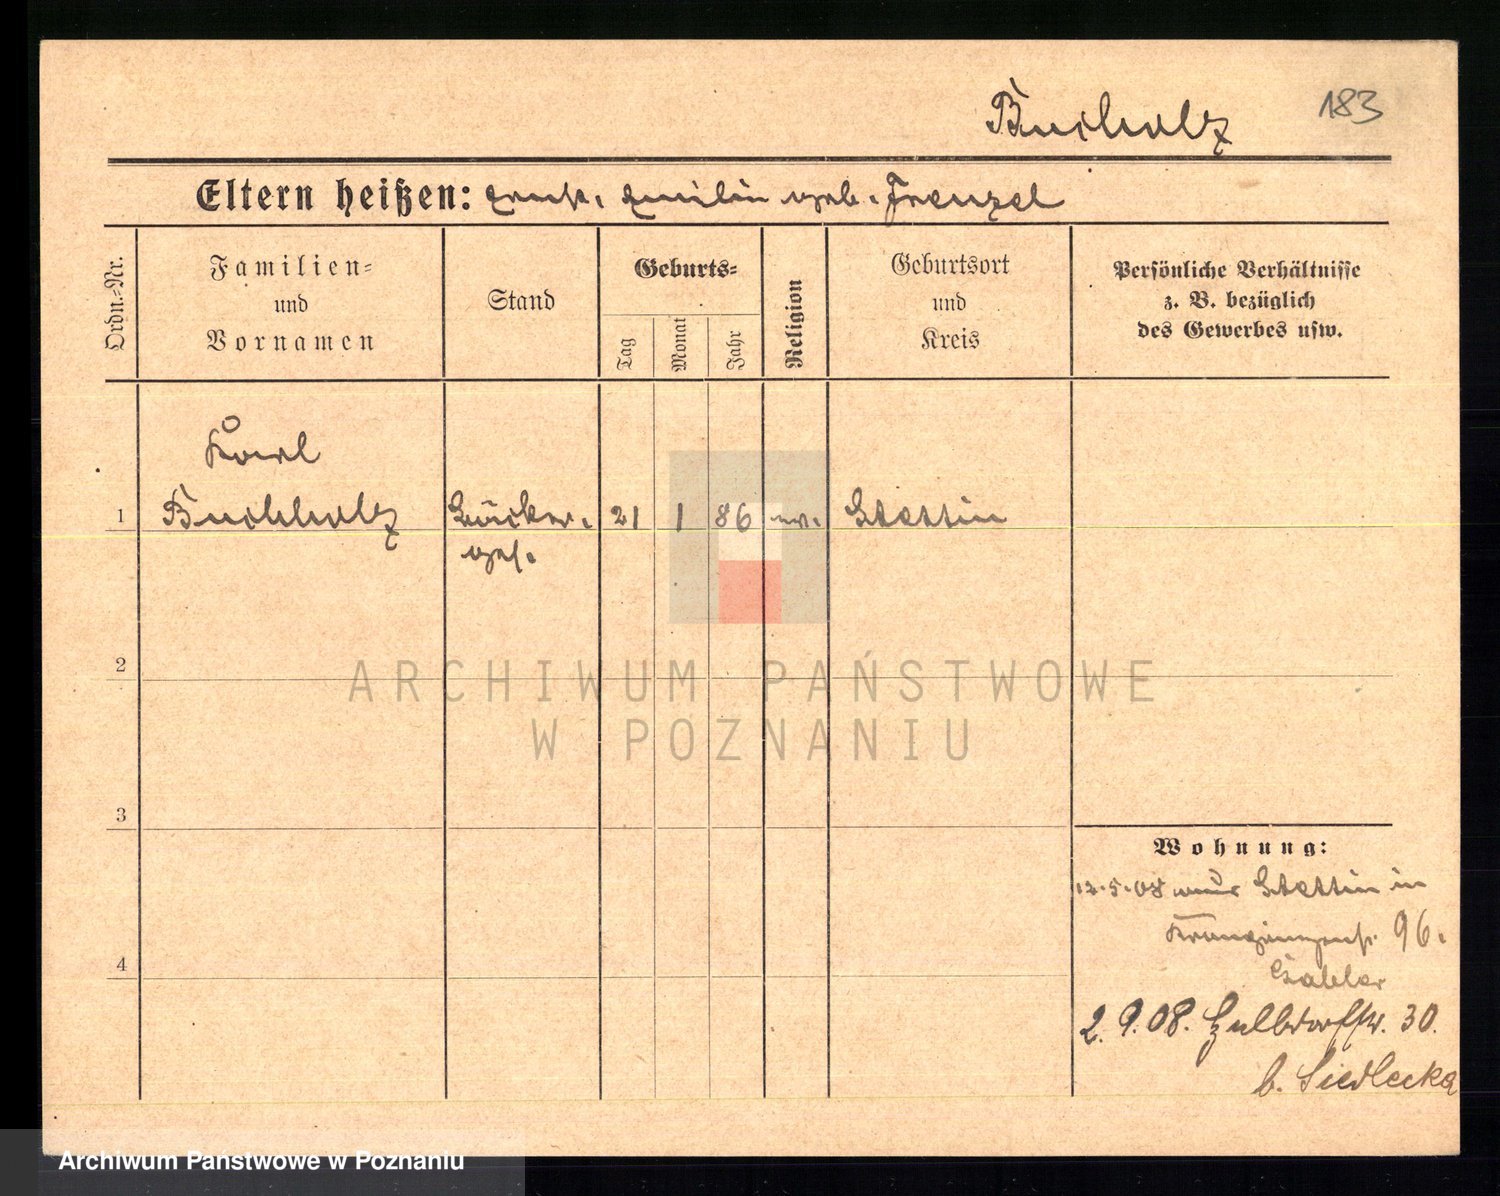 Buchholz 183
Eltern heißen: Ernst, Emilie geb. Frenzel
Ordn.=Nr.
Familien=
und
Vornamen
Stand
Geburts=
Tag
Monat
Jahr
Religion
Geburtsort
und
Kreis
Persönliche Verhältnisse
z. B. bezüglich
des Gewerbes usw.
Karl
1 Buchholz Bäcker- 21 1 86 ev. Stettin
ges.
2
3
4
Wohnung:
12.5.08 Stettin in
96.
2.9.08. 30.
b. Siedlecka
ARCHIWUM PAŃSTWOWE
W POZNANIU
Archiwum Państwowe w Poznaniu